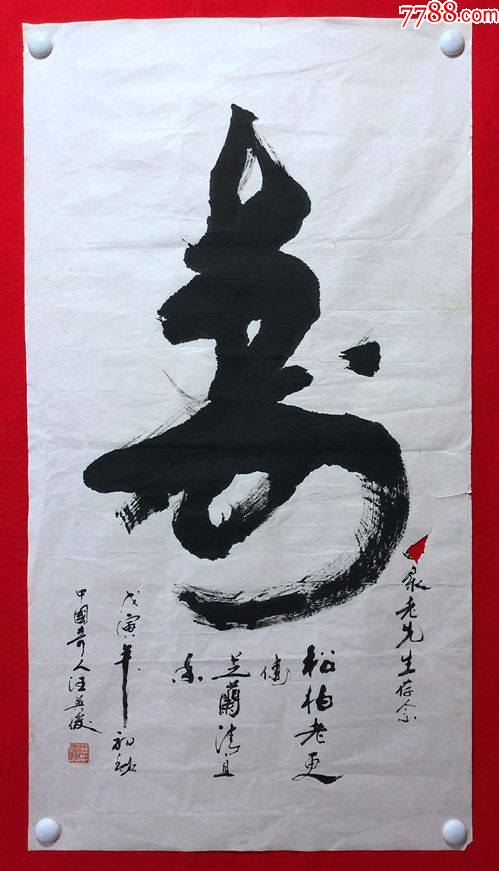 7788.com
寿
泉老先生存念
松柏老更
健
芝兰清且
香
戊寅年初秋
中国奇人汪英俊